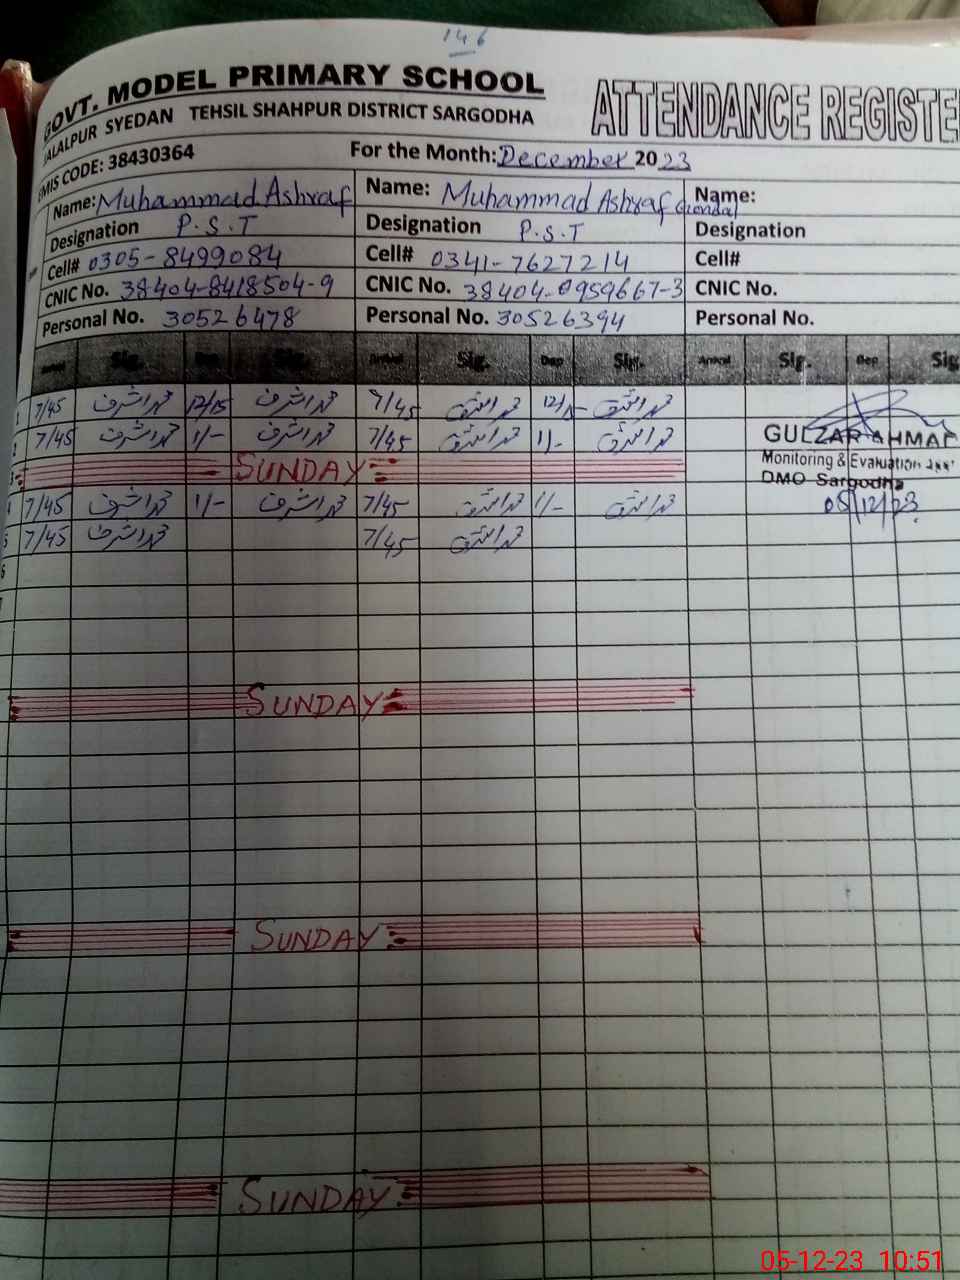 146
GOVT. MODEL PRIMARY SCHOOL
JALALPUR SYEDAN TEHSIL SHAHPUR DISTRICT SARGODHA
ATTENDANCE REGISTE
EMIS CODE: 38430364
For the Month: December 2023
Name: Muhammad Ashraf
Name: Muhammad Ashraf Gondal
Name:
Designation P.S.T
Designation P.S.T
Designation
Cell# 0305-8499084
Cell# 0341-7627214
Cell#
CNIC No. 38404-8418504-9
CNIC No. 38404-0959667-3
CNIC No.
Personal No. 30526478
Personal No. 30526394
Personal No.
Arrival Sig. Dep Sig. Arrival Sig. Dep Sig. Arrival Sig. Dep Sig.
1 7/45 محمد اشرف 12/15 محمد اشرف 7/45 محمد اشرف 12/ محمد اشرف
2 7/45 محمد اشرف 1/- محمد اشرف 7/45 محمد اشرف 1/- محمد اشرف
GULZAR AHMAD
3 SUNDAY
Monitoring & Evaluation
DMO Sargodha
4 7/45 محمد اشرف 1/- محمد اشرف 7/45 محمد اشرف 1/- محمد اشرف
05/12/23
5 7/45 محمد اشرف 7/45 محمد اشرف
6
SUNDAY
SUNDAY
SUNDAY
05-12-23 10:51